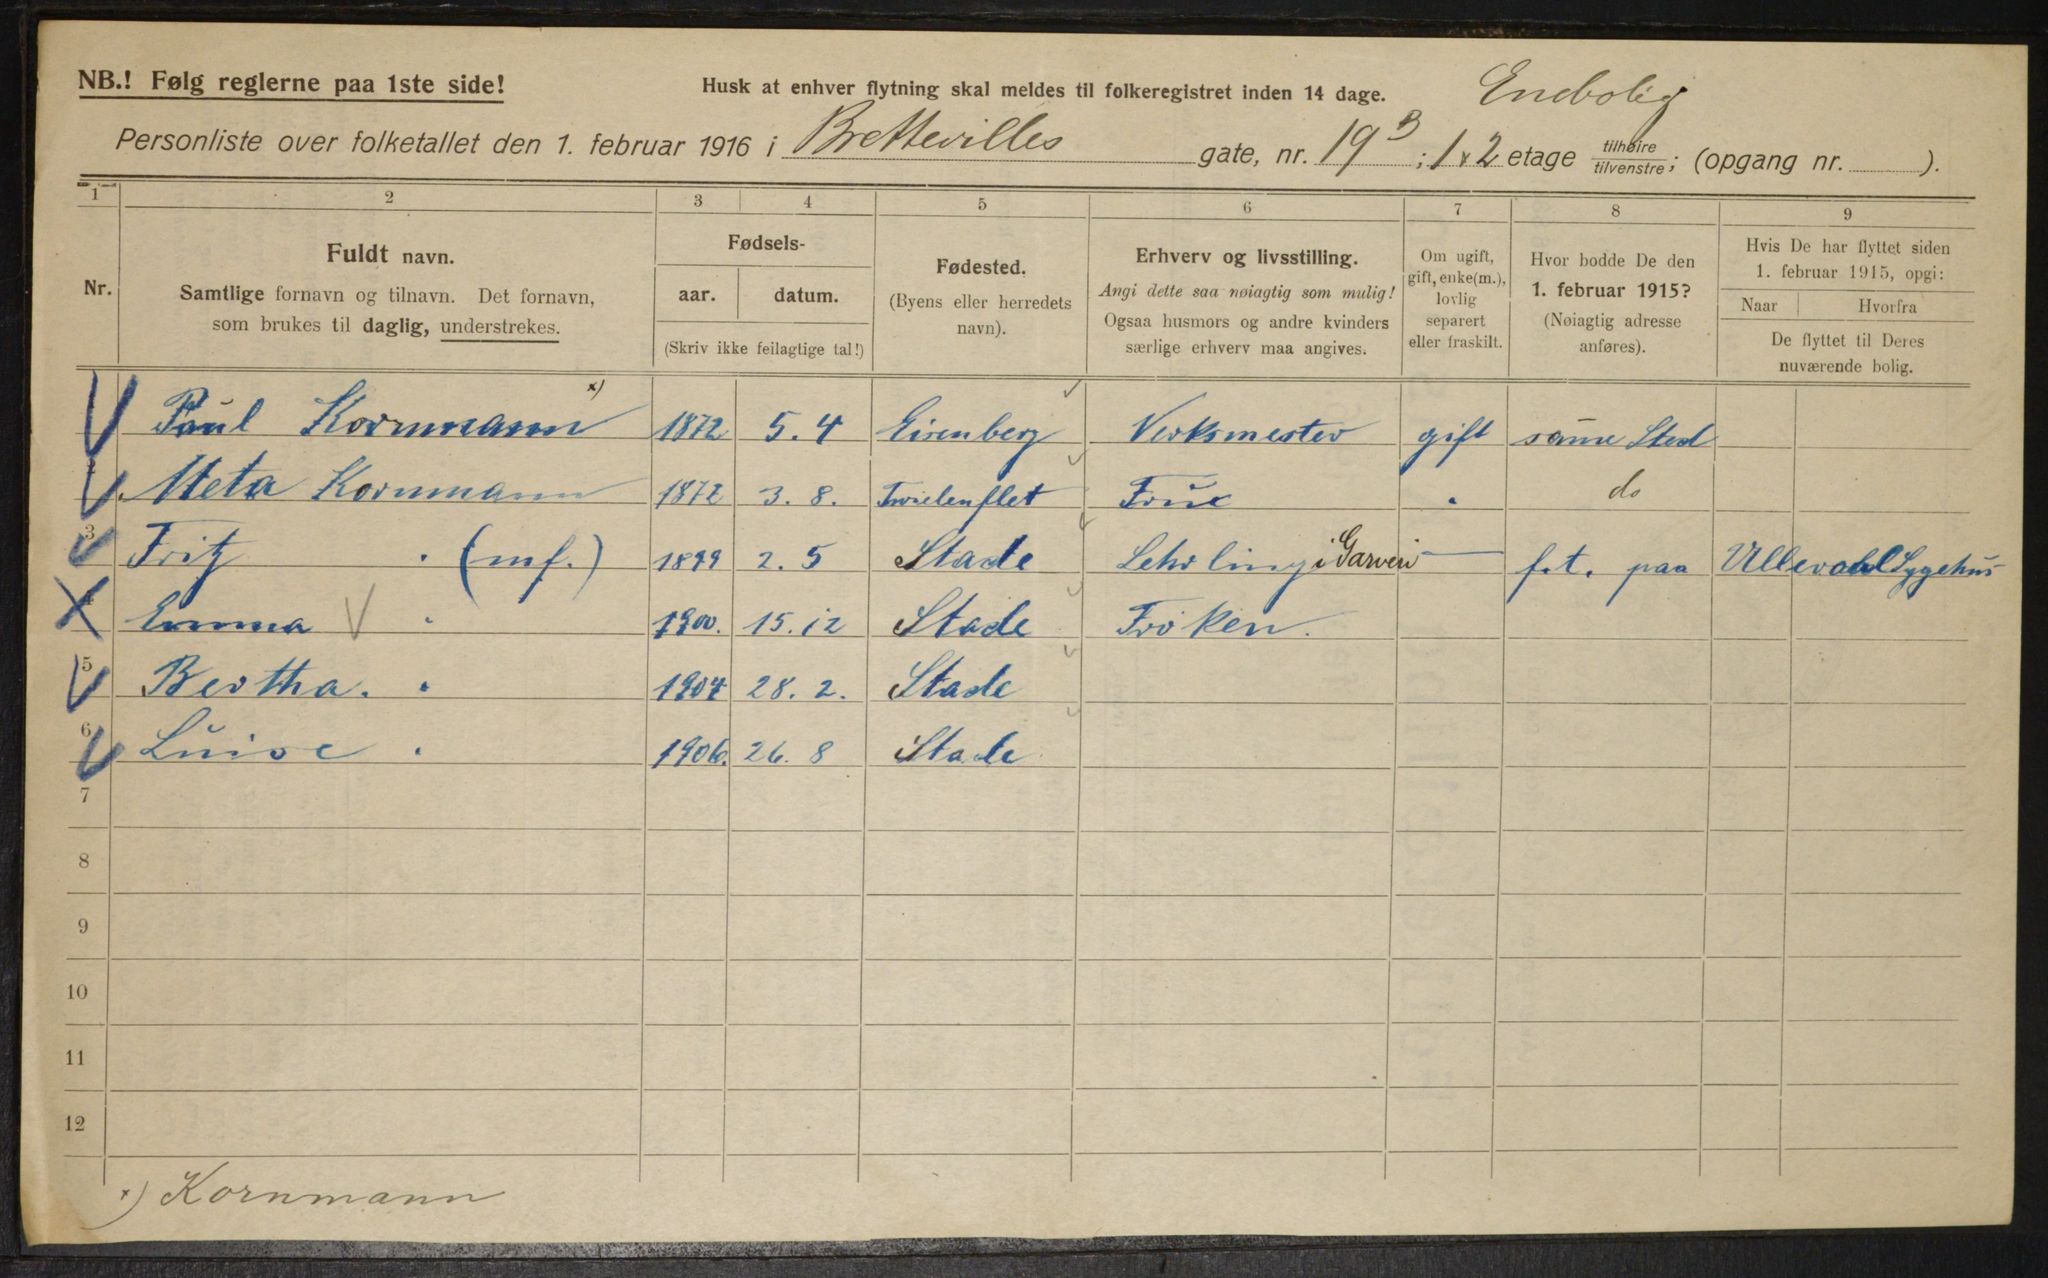 NB.! Følg reglerne paa 1ste side! Husk at enhver flytning skal meldes til folkeregistret inden 14 dage. Enebolig
Personliste over folketallet den 1. februar 1916 i Brettevilles gate, nr. 19 B ; 1 x 2 etage tilhøire/tilvenstre; (opgang nr. ).
1 2 3 4 5 6 7 8 9
Nr.
Fuldt navn.
Samtlige fornavn og tilnavn. Det fornavn,
som brukes til daglig, understrekes.
Fødsels-
aar. datum.
(Skriv ikke feilagtige tal!)
Fødested.
(Byens eller herredets
navn).
Erhverv og livsstilling.
Angi dette saa nøiagtig som mulig!
Ogsaa husmors og andre kvinders
særlige erhverv maa angives.
Om ugift,
gift, enke(m.),
lovlig
separert
eller fraskilt.
Hvor bodde De den
1. februar 1915?
(Nøiagtig adresse
anføres).
Hvis De har flyttet siden
1. februar 1915, opgi:
Naar Hvorfra
De flyttet til Deres
nuværende bolig.
Paul Kornmann x) 1872 5.4 Eisenberg Verksmester gift same Sted
Meta Kornmann 1872 3.8. Twielenflet Frue " do
3 Fritz " (mf.) 1899 2.5 Stade Lehrling i Garveri — f.t. paa Ullevaal Sygehus
4 Emma " 1900. 15.12 Stade Fröken.
5 Bertha. " 1904 28.2. Stade
6 Luise " 1906. 26.8 Stade
7
8
9
10
11
12
x) Kornmann